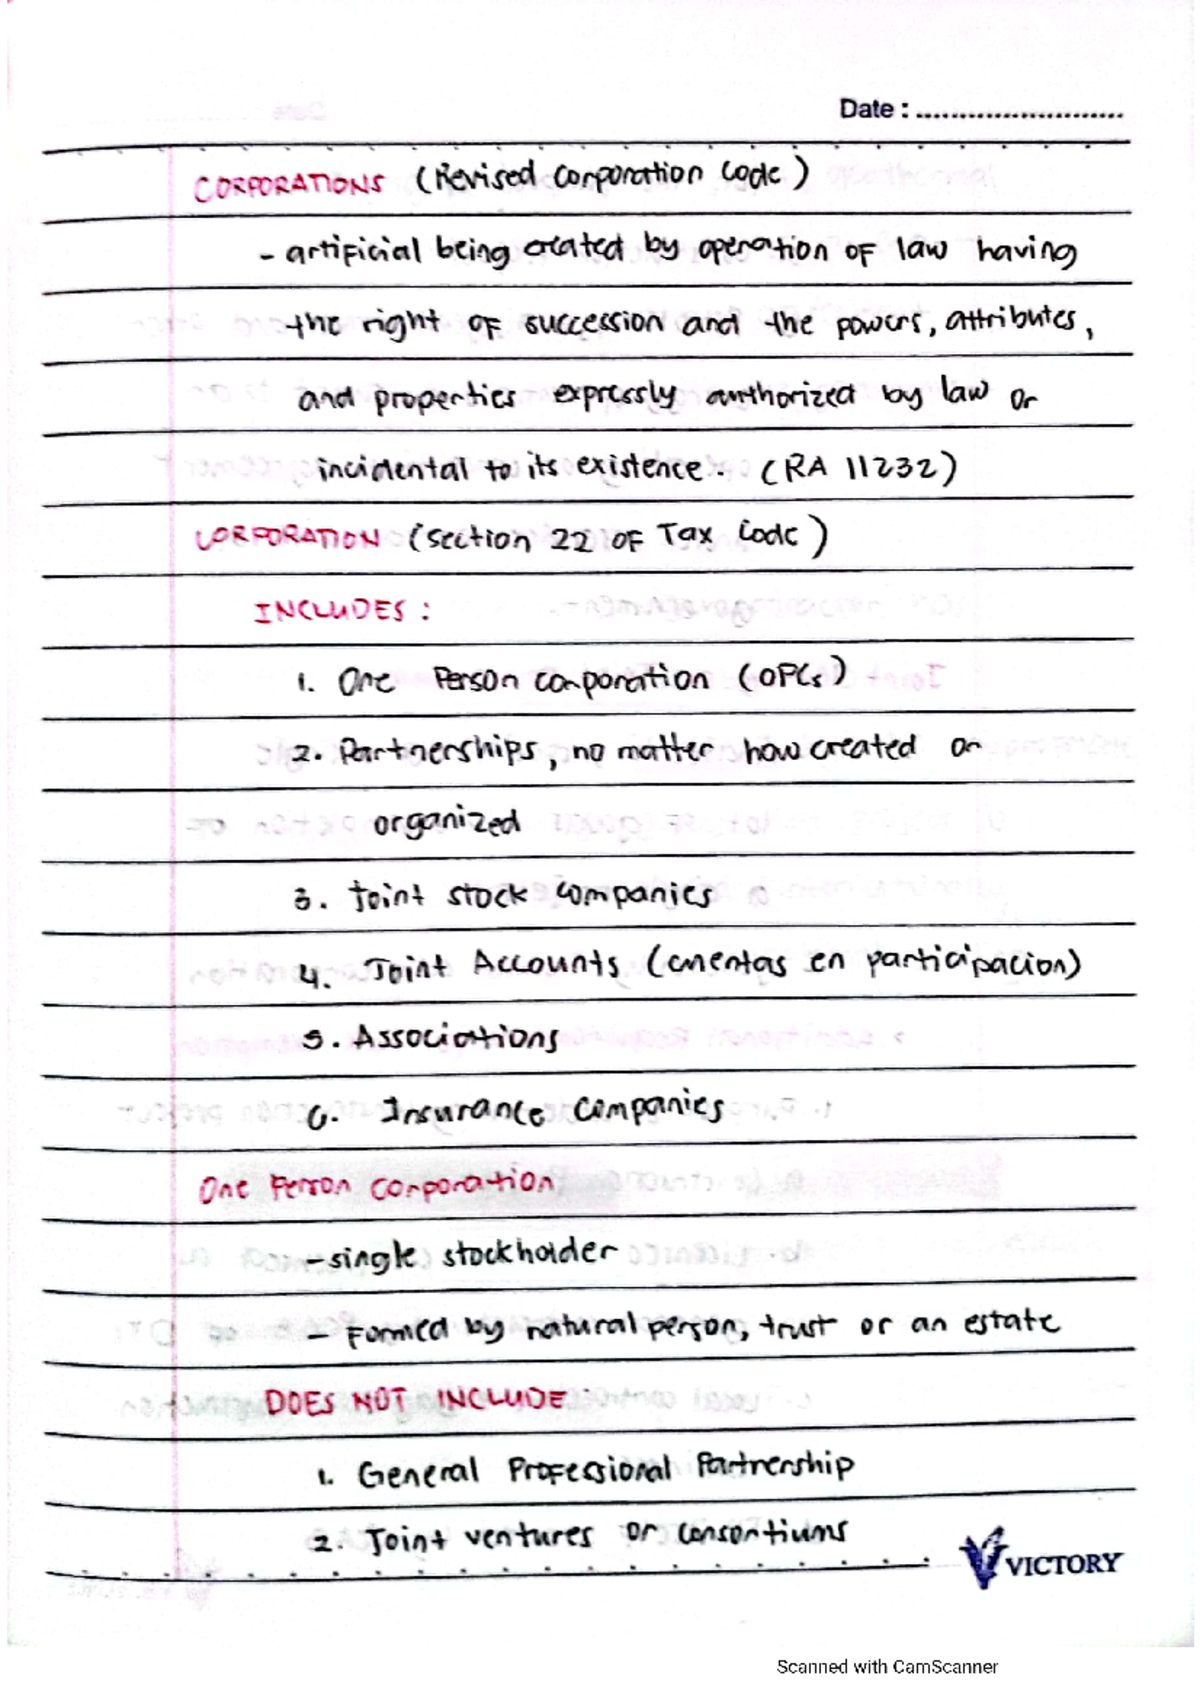 Date : ........................
CORPORATIONS (Revised Corporation Code)
- artificial being created by operation of law having
the right of succession and the powers, attributes,
and properties expressly authorized by law or
incidental to its existence. (RA 11232)
CORPORATION (Section 22 OF Tax Code)
INCLUDES :
1. One Person corporation (OPCs)
2. Partnerships, no matter how created or
organized
3. Joint stock companies
4. Joint Accounts (cuentas en participacion)
5. Associations
6. Insurance companies
One Person Corporation
- single stockholder
- Formed by natural person, trust or an estate
DOES NOT INCLUDE :
1. General Professional Partnership
2. Joint ventures or consortiums
VICTORY
Scanned with CamScanner